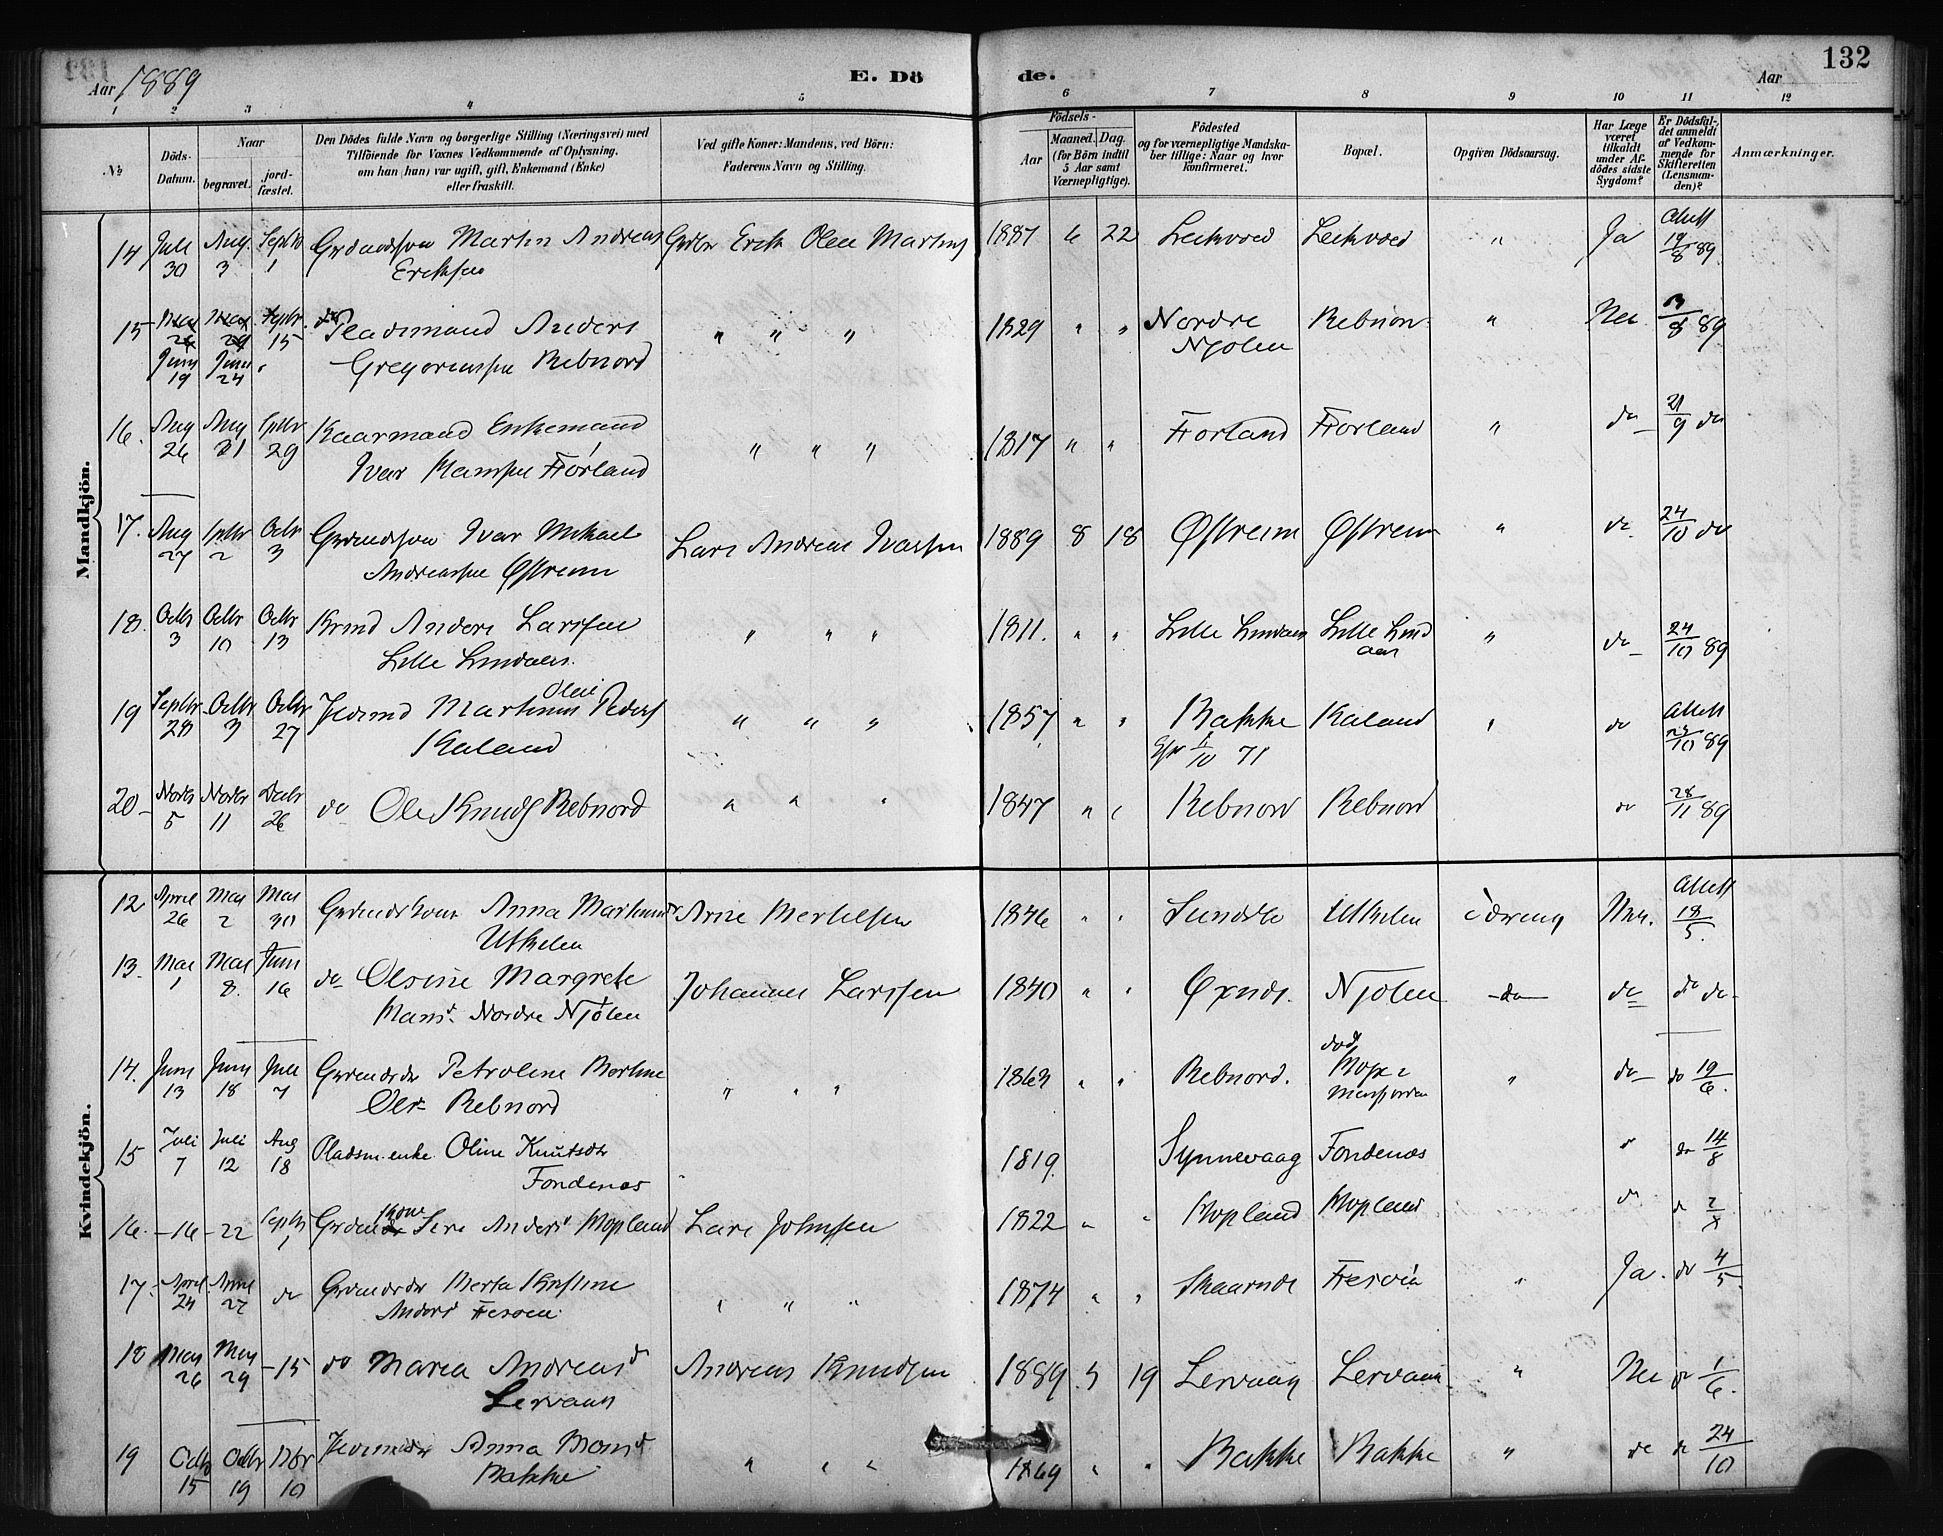 Aar 1889
E. Dö
de.
Aar
132
1 2 3 4 5 6 7 8 9 10 11 12
No
Döds-
Datum.
Naar
begravet.
jord-
fæstet.
Den Dödes fulde Navn og borgerlige Stilling (Næringsvei) med
Tilföiende for Voxnes Vedkommende af Oplysning,
om han (hun) var ugift, gift, Enkemand (Enke)
eller fraskilt.
Ved gifte Koner: Mandens, ved Börn:
Faderens Navn og Stilling.
Födsels-
Aar
Maaned. Dag.
(for Börn indtil
5 Aar samt
Værnepligtige).
Födested
og for værnepligtige Mandska-
ber tillige: Naar og hvor
konfirmeret.
Bopæl.
Opgiven Dödsaarsag.
Har Læge
været
tilkaldt
under Af-
dödes sidste
Sygdom?
Er Dödsfal-
det anmeldt
af Vedkom-
mende for
Skifteretten
(Lensman-
den)?
Anmærkninger.
Mandkjön.
14 Juli 30 Aug. 3 Septbr 1 Martin Andreas Eriksen Erik Olai 1887 6 22 Leikvold Leikvold " Ja 19/8 89.
15 Juni 19 Juni 24 15 Pladsmand Anders
Gregoriussen Rebnord " " " 1829 " " Nordre Njølen Rebnord " Nei 13/8 89
16. Aug 26 Aug 31 Septbr 29 Kaarmand Enkemand
Ivar Hanssen Förland " " " 1817 " " Forland Forland " do 21/9 do
17. Aug 27 Septbr 2 Octbr 3 Ivar Mikael
Andreassen Østreim Lars Andreas Ivarsen 1889 8 18 Østreim Østreim " do 24/10 do
18. Octbr 3 Octbr 10 Octbr 13 Anders Larssen
Lille Lindaas. " " " 1811. " " Lille Lindaas Lille Lindaas " do 24/10 89
19 Septbr 28 Octbr 3 Octbr 27 Martinus Olai Peders
Kaland " " " 1857 " " Bakke 1/10 71 Kaland " do 29/10 89
20 Novbr 5 Novbr 11 Decbr 26 do Ole Knuds Rebnord " " " 1847 " " Rebnord Rebnord do 28/11 89
Kvindekjön.
12 April 26 Mai 2 Mai 30 Anna
Utkilen Arne Mertilsen 1846 " " Sundsbø Utkilen Nei. 18/5.
13. Mai 1 Mai 8. Juni 16 do Olsine Margrete
Mons. Nordre Njølen Johannes Larssen 1840 " " Njølen do do do do
14. Juni 13 Juni 18 Juli 7 Petroline
Ols Rebnord " " " 1863 " " Rebnord. " do do 19/6.
15 Juli 7 Juli 12 Aug 18 Pladsm. enke Oline Knutsdtr
Fondenes 1819. Synnevaag Fondenes " do 14/8
16. -16 -22 Septbr 1 Anders Hopland Lars Johnsen 1822 " " Hopland Hopland do do
17. April 24 April 27 do Berta Kristine
Anders " " " 1874 " " " Ja. do 4/5.
18 Mai 26 Mai 29 -15 do Maria Andreas
Lervaag Andreas Knudsen 1889 5 19 Lervaag Lervaag " Nei do 1/6.
19 Octbr 15 Octbr 19 Nbr 10 Anna Mons
Bakke " " " 1869 " " Bakke Bakke " do do 24/10